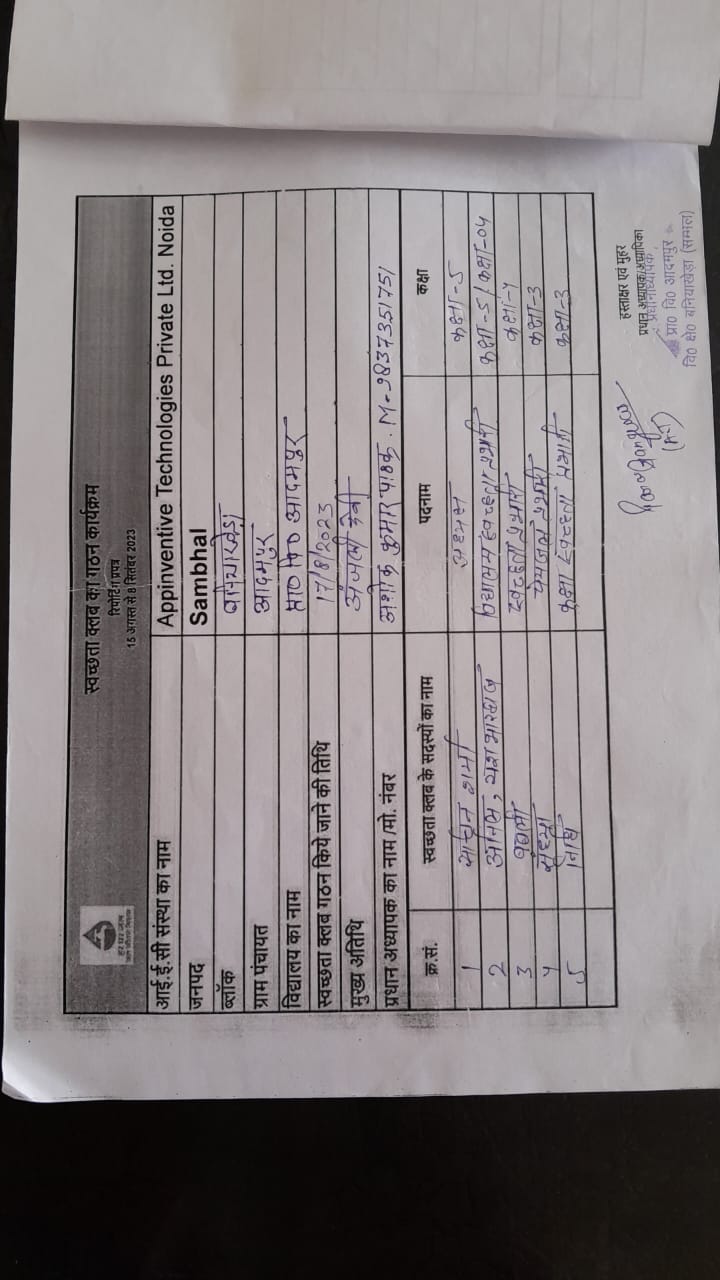 हर घर जल
जल जीवन मिशन
स्वच्छता क्लब का गठन कार्यक्रम
रिपोर्टिंग प्रपत्र
15 अगस्त से 8 सितंबर 2023
आई.ई.सी संस्था का नाम Appinventive Technologies Private Ltd. Noida
जनपद Sambhal
ब्लॉक बनियाखेड़ा
ग्राम पंचायत आदमपुर
विद्यालय का नाम प्रा० वि० आदमपुर
स्वच्छता क्लब गठन किये जाने की तिथि 17/8/2023
मुख्य अतिथि अंजली देवी
प्रधान अध्यापक का नाम/मो. नंबर अशोक कुमार पाठक . M-9837351751
क्र.सं. स्वच्छता क्लब के सदस्यों का नाम पदनाम कक्षा
1 सचिन शर्मा अध्यक्ष कक्षा-5
2 यश भारद्वाज विद्यालय स्वच्छता प्रभारी कक्षा-5/कक्षा-04
3 स्वच्छता प्रभारी कक्षा-4
4 संध्या पेयजल प्रभारी कक्षा-3
5 निधि कक्षा स्वच्छता प्रभारी कक्षा-3
हस्ताक्षर एवं मुहर
प्रधान अध्यापक/अध्यापिका
प्रधानाध्यापक
प्रा० वि० आदमपुर
वि० क्षे० बनियाखेड़ा (सम्भल)